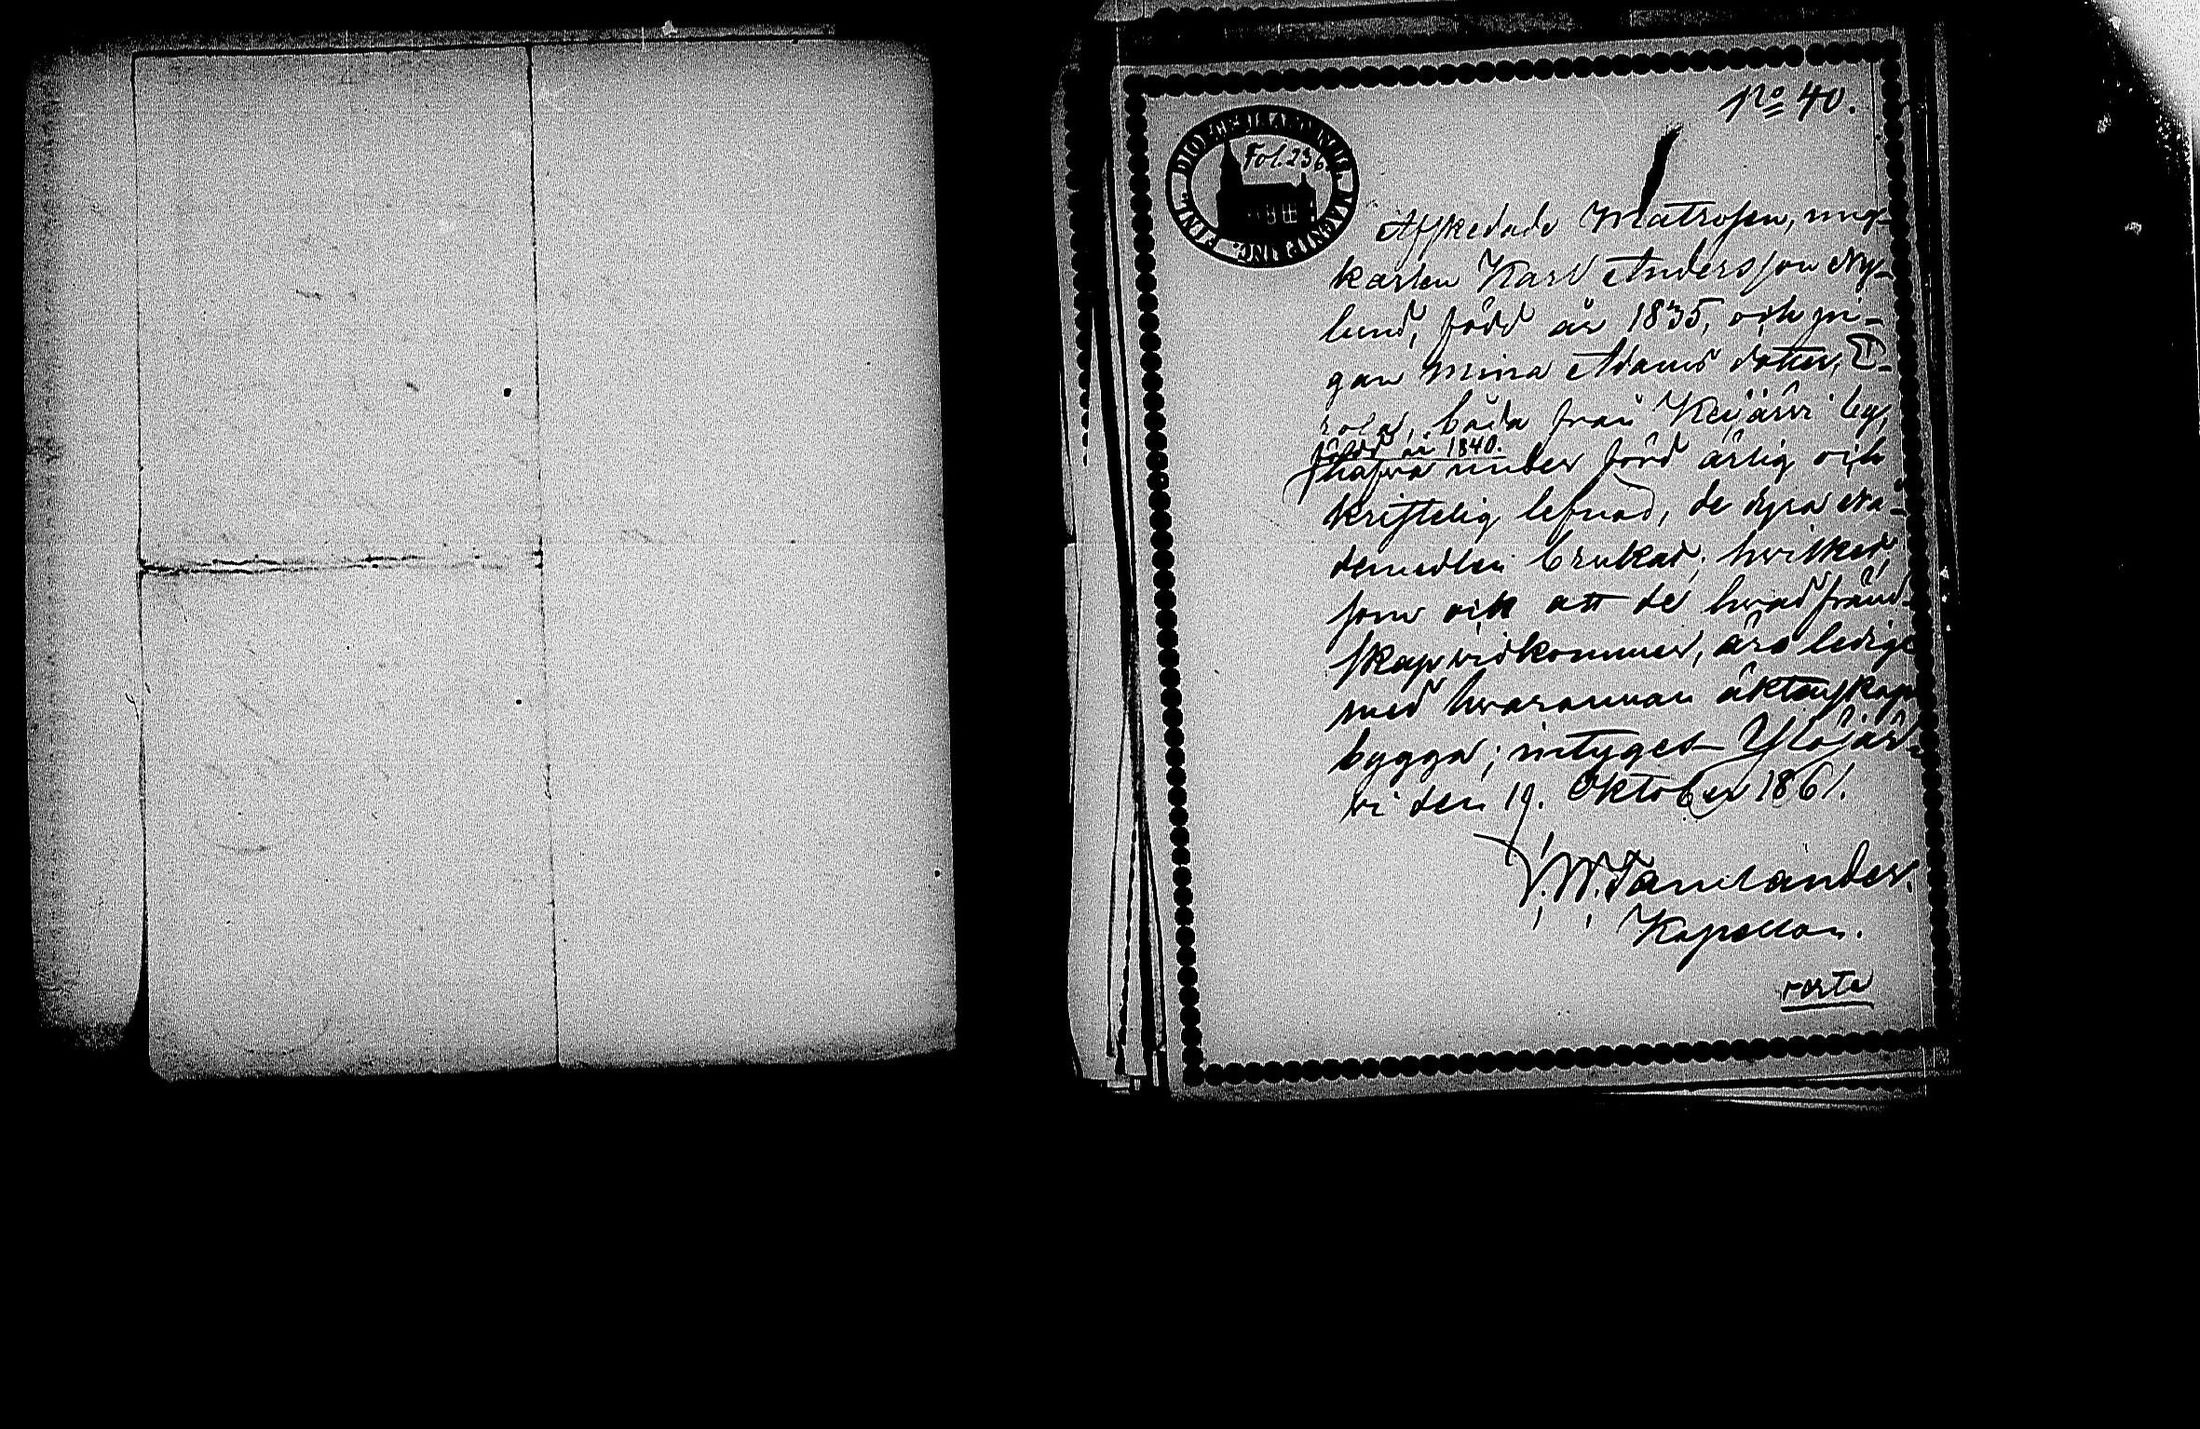 No 40.
Fol. 236.
Afskedade Matrosen, ung-
karlen Karl Andersson Ny-
lund, född år 1835, och pi-
gan Mina Adams dotter,
båda från Keijärvi by,
född år 1840.
hafva under förd ärlig och
kristelig lefnad, de dyra Nå-
demedlen brukat; hvilket
som ock att de hvad fränd-
skap vidkommer, äro lediga
med hvarannan äktenskap
bygga; intygas Ylöjär-
vi den 19. Oktober 1861.
Kapellan.
verte